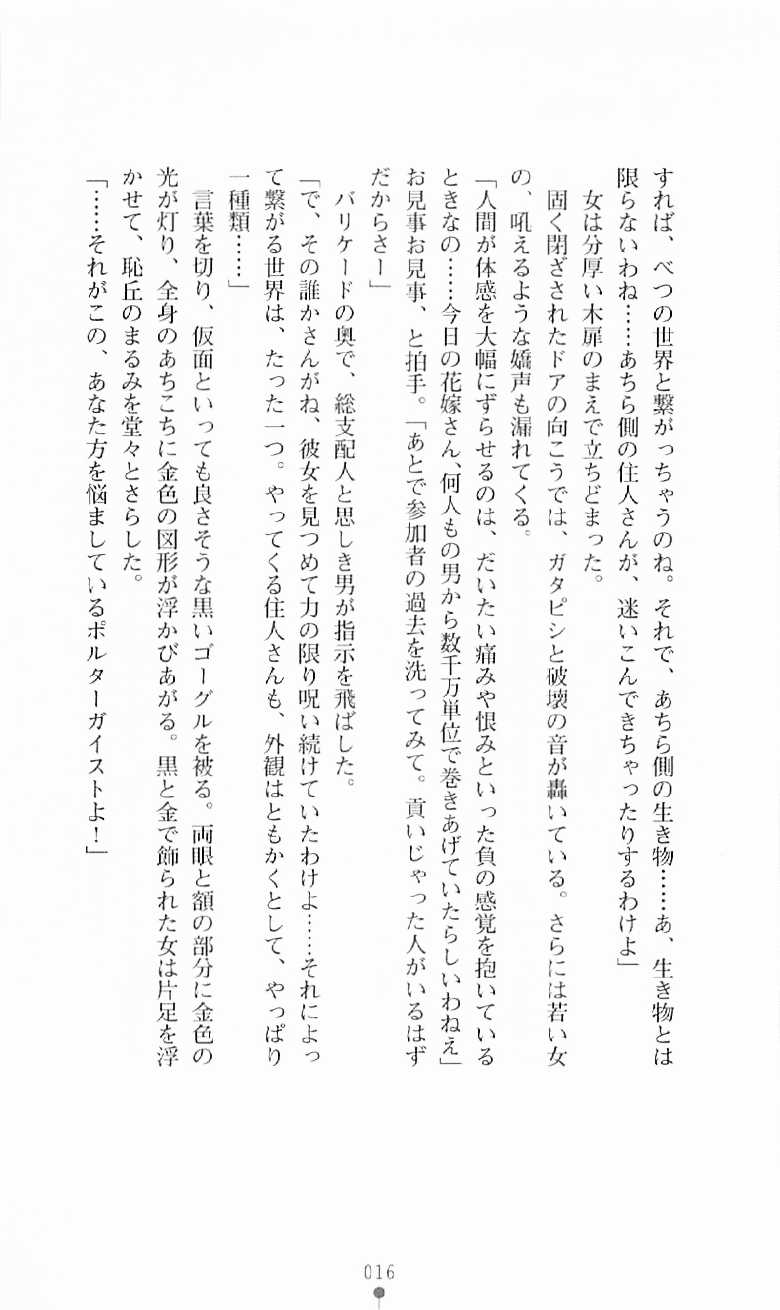 すれば、べつの世界と繋がっちゃうのね。それで、あちら側の生き物……あ、生き物とは
限らないわね……あちら側の住人さんが、迷いこんできちゃったりするわけよ」
　女は分厚い木扉のまえで立ちどまった。
　固く閉ざされたドアの向こうでは、ガタピシと破壊の音が轟いている。さらには若い女
の、吼えるような嬌声も漏れてくる。
「人間が体感を大幅にずらせるのは、だいたい痛みや恨みといった負の感覚を抱いている
ときなの……今日の花嫁さん、何人もの男から数千万単位で巻きあげていたらしいわねえ」
お見事お見事、と拍手。「あとで参加者の過去を洗ってみて。貢いじゃった人がいるはず
だからさー」
　バリケードの奥で、総支配人と思しき男が指示を飛ばした。
「で、その誰かさんがね、彼女を見つめて力の限り呪い続けていたわけよ……それによっ
て繋がる世界は、たった一つ。やってくる住人さんも、外観はともかくとして、やっぱり
一種類……」
　言葉を切り、仮面といっても良さそうな黒いゴーグルを被る。両眼と額の部分に金色の
光が灯り、全身のあちこちに金色の図形が浮かびあがる。黒と金で飾られた女は片足を浮
かせて、恥丘のまるみを堂々とさらした。
「……それがこの、あなた方を悩ましているポルターガイストよ！」
016